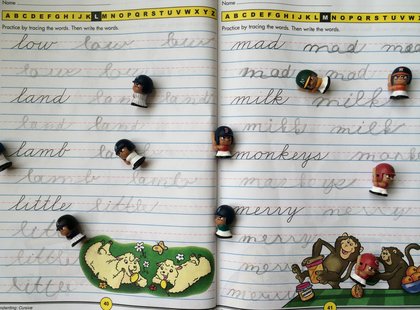 Name
A B C D E F G H I J K L M N O P Q R S T U V W X Y Z
Practice by tracing the words. Then write the words.
low low low
low low
land land land
land land
lamb lamb
lamb lamb
little
little
little
40
Cursive
Name
A B C D E F G H I J K L M N O P Q R S T U V W X Y Z
Practice by tracing the words. Then write the words.
mad mad mad
mad mad
milk milk
milk milk
monkeys
monkeys
merry merry
merry
merry
merry
41